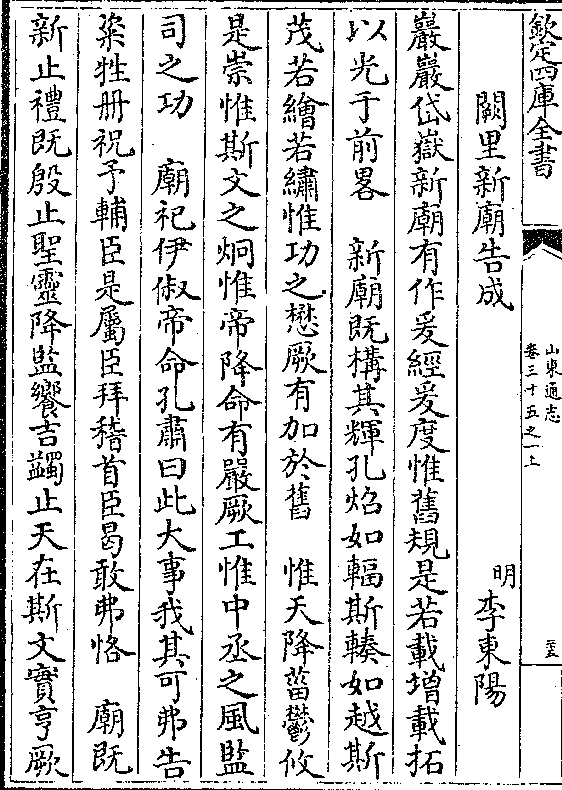 欽定四庫全書
山東通志
卷三十五之一上
闕里新廟告成
明 李東陽
巖巖岱嶽新廟有作爰經爰度惟舊規是若載增載拓
以光于前畧 新廟既構其輝孔焰如輻斯輳如越斯
茂若繪若繡惟功之懋厥有加於舊 惟天降菑鬱攸
是崇惟斯文之炯惟帝降命有嚴厥工惟中丞之風監
司之功 廟祀伊俶帝命孔肅曰此大事我其可弗告
粢牲册祝予輔臣是屬臣拜稽首臣曷敢弗恪 廟既
新止禮既殷止聖靈降監饗吉蠲止天在斯文實亨厥